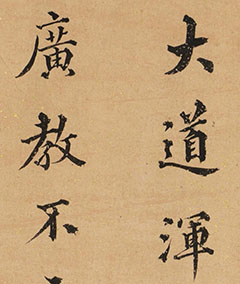 大道渾
廣教不